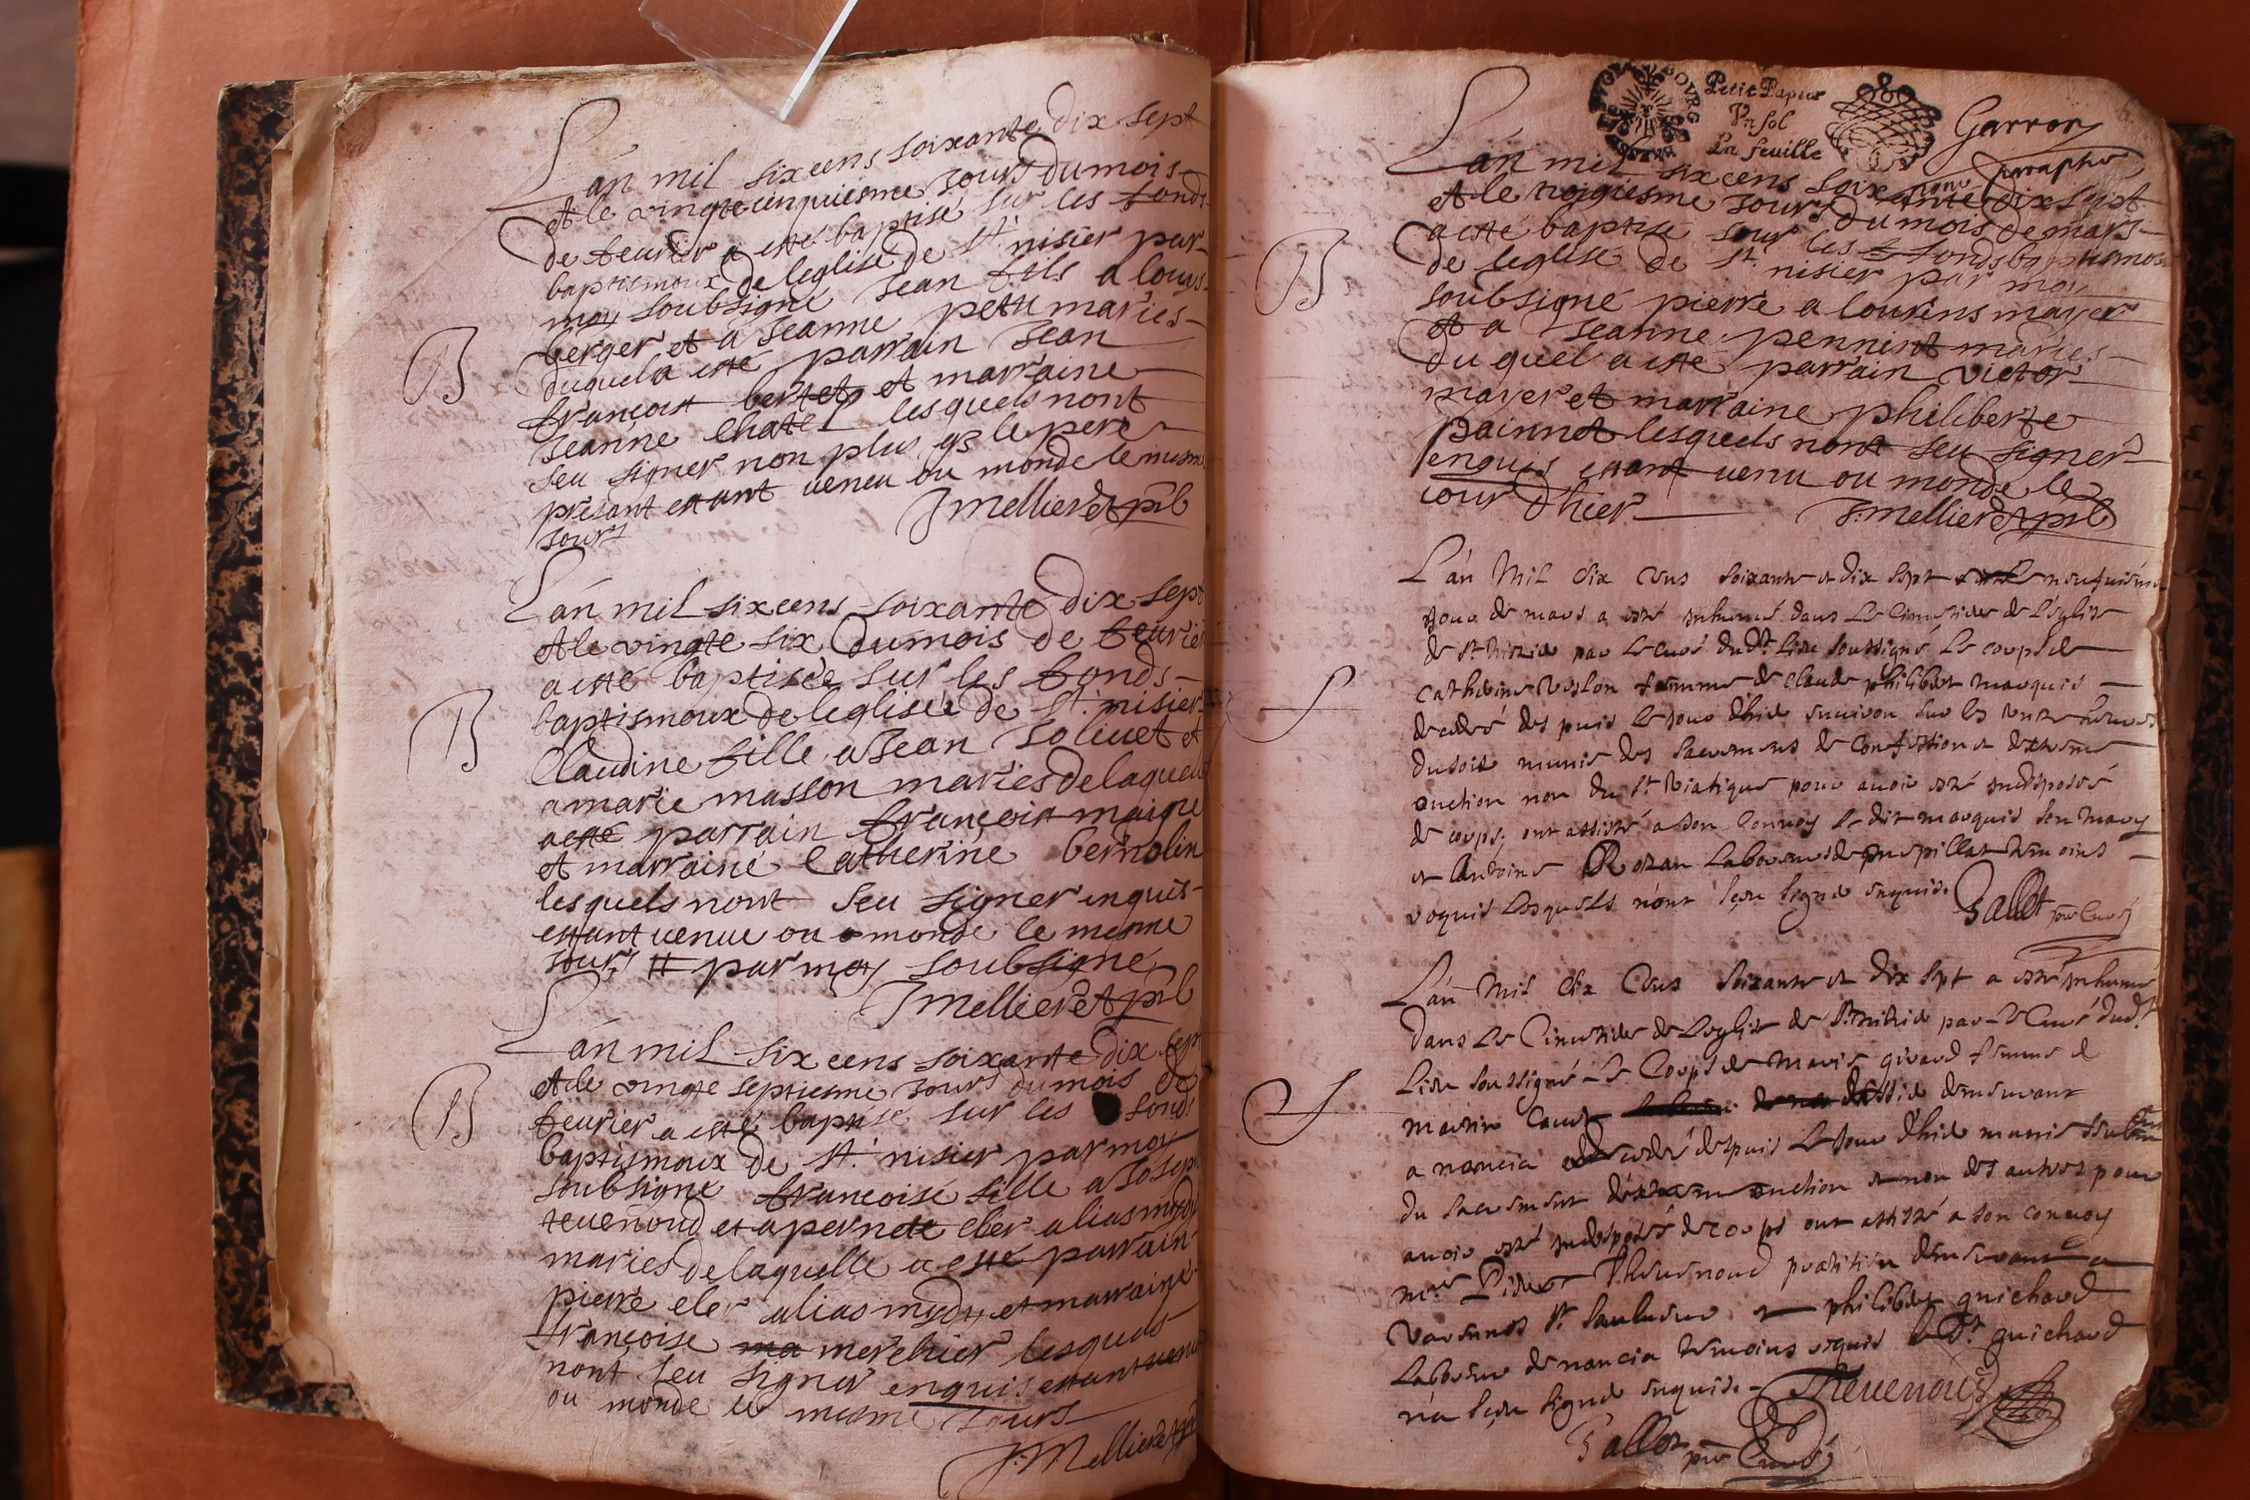 Lán mil six cens soixante dix sept
et le vingte cinquiesme Jours du mois
de feurier a esté baptisé sur les fonds
baptismoux de leglise de St. nisier par
moy soubsigné Jean fils a louys
berger et a Jeanne petit mariés
duquel a esté parrain Jean
françois bertet et marraine
Jeanne Chatel lesquels nont
seu signer non plus q3 le pere
présant estant veneu ou monde le mesme
Jours
J mellier et pīb
B
Lán mil six cens soixante dix sept
et le vingte six du mois de feurier
a esté baptisée sur les fonds
baptismoux de leglisée de St. nisier
Claudine fille a Jean Joliuet et
a marie masson mariés de laquelle
a esté parrain françois maigre
et marrainé Catherine bernolin
lesquels nont seu signer enquis
estant venue ou monde le mesme
Jours # par moy soubsigné
J mellier et pīb
B
Lán mil six cens soixante dix sept
et le vingte septiesme Jours du mois de
feurier a esté baptisé sur les fonds
baptismoux de St. nisier par moy
soubsigné françoise fille a Joseph
teuenoud et a pernete cler alias
mariés de laquelle a esté parrain
pierre cler alias et marraine
françoise ma merchier lesquels
nont seu signer enquis estant venue
ou monde le mesme Jours
J. Mellier et pīb
B
BOURG
Petit Papier
Vn sol
La feuille
Garron
paraphé
Lán mil six cens soixante dix sept
et le Jours du mois de mars
a esté baptisé sur les fonds baptismoux
de leglisé de St. nisier par moy
soubsigné pierre a lourins mayer
et a Jeanne pennint mariés
du quel a esté parrain victor
mayer et marraine philiberte
painnot lesquels nont seu signer
enquis estant venu ou monde le
iour d'hier
J. mellier et pīb
B
L'án Mil Six Cens soixante et dix sept neufuiéme
Jour de mars a esté inhumé dans le Cimetiere de l'église
de St. Nisier par le curé dudt. lieu soussigné le corps de
Catherine femme de Claude philibert marquis
décédé des puis le jour d'hier enuiron sur les heures
du soir munie des sacremens de Confession et d'extreme
onction non du St. viatique pour auoir esté indisposée
de corps; ont assisté a son Conuoy le dit marquis son mary
et Antoine laboureur de temoins
réquis lesquels n'ont sçeu signer enquis.
Gallet pr̄e Curé
S
L'án Mil Six Cens soixante et dix sept a esté inhumé
dans le Cimetiere de l'eglise de St. nisier par le Curé dudt.
lieu soussigné le Corps de Marie girard femme de
martin demeurant
a nancia décédé despuis le jour d'hier munie
du sacrement d'extreme onction et non des autres pour
auoir esté indisposée de corps ont assisté a son conuoy
mre. Theuenoud pratitien demeurant a
Varennes St. Sauueur et philibert guichard
laboureur de nancia temoins réquis ledt. guichard
n'a sçeu signer enquis.
Theuenoud
Gallet pr̄e Curé
S